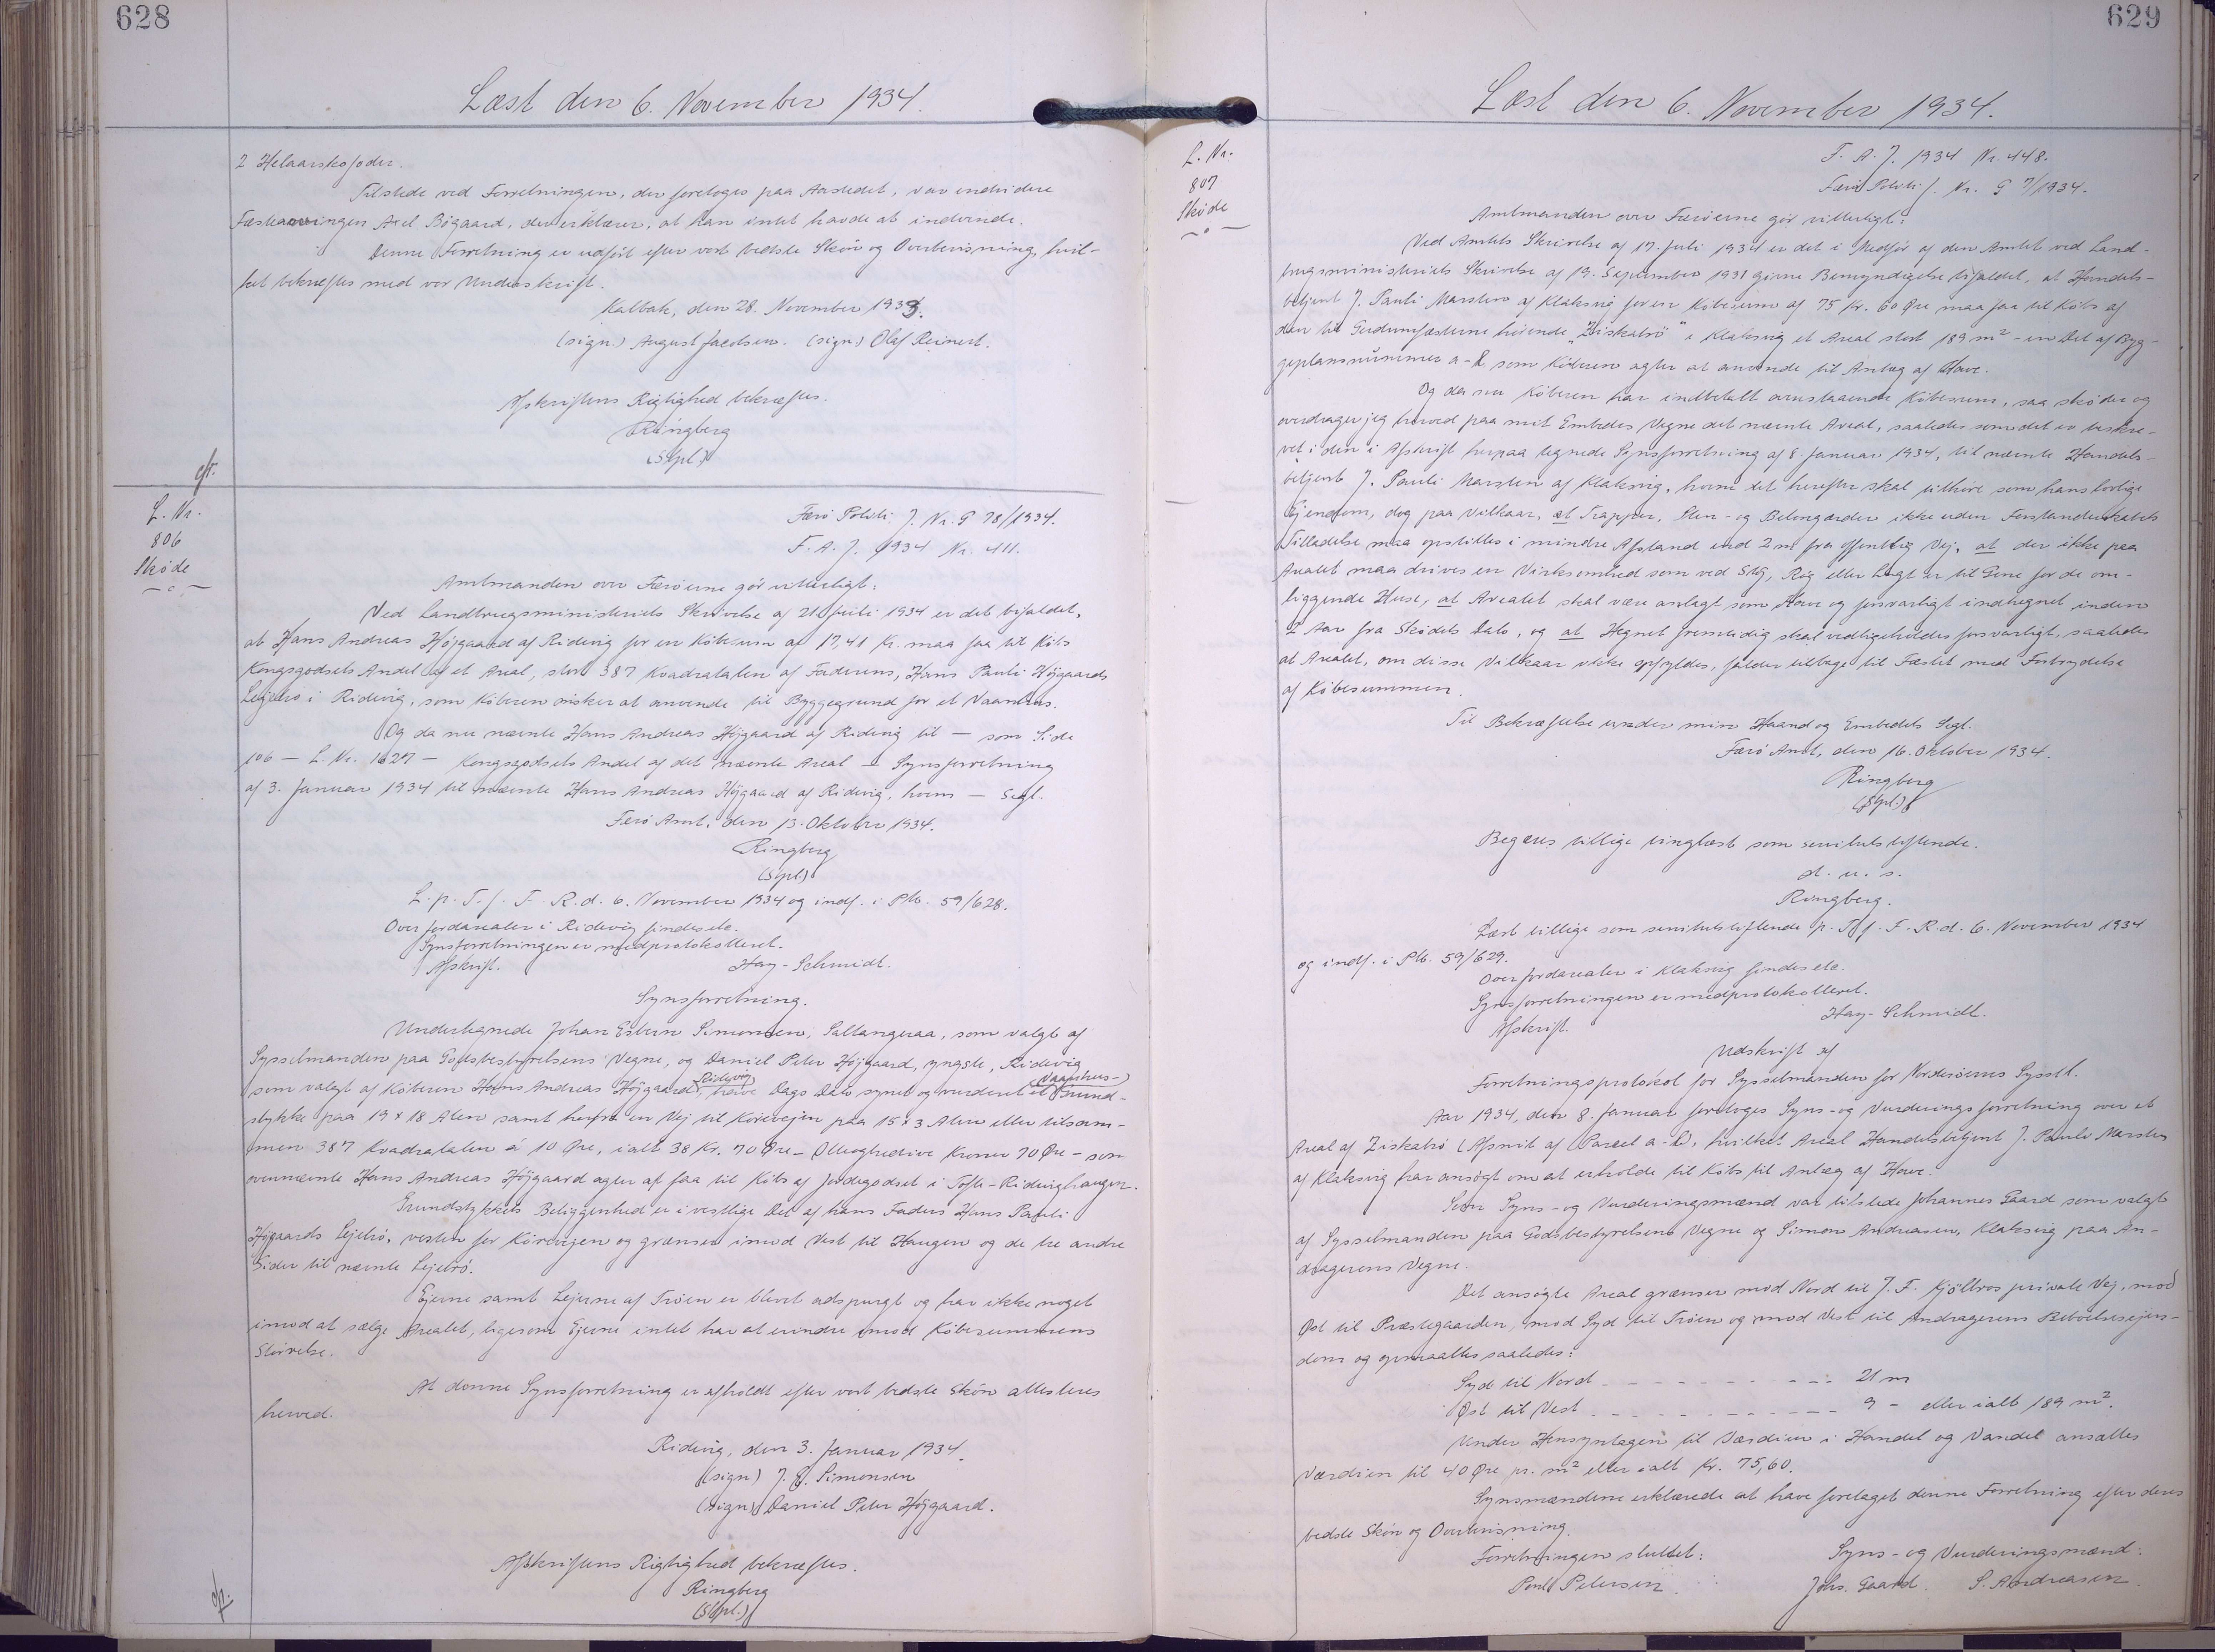 628
Læst den 6. November 1934.
2 Helaarskofoder.
Tilstede ved Forretningen, der foretoges paa Aastedet, var endvidere
Fæsterenringen Axel Bögaard, der erklærer, at han intet havde at indvende.
Denne Forretning er udført efter vort bedste Skön og Overbevisning, hvil-
ket bekræftes med vor Underskrift.
Kalbak, den 28. November 1933.
(sign.) August Jacobsen. (sign.) Olaf Reinert.
Afskriftens Rigtighed bekræftes.
Ringberg
(Stpl.)
cfr.
L. Nr.
806
Sköde
Færö Politi J. Nr. G 78/1934.
F. A. J. 1934 Nr. 411.
Amtmanden over Færöerne gör vitterligt:
Ved Landbrugsministeriets Skrivelse af 21 Juli 1934 er det bifaldet,
at Hans Andreas Höjgaard af Ridevig for en Köbesum af 17,41 Kr. maa faa til Köbs
Kongsgodsets Andel af et Areal, stort 387 Kvadratalen af Faderens, Hans Pauli Höjgaards
Lejetrö i Ridevig, som Köberen önsker at anvende til Byggegrund for et Vaanhus.
Og da nu nævnte Hans Andreas Höjgaard af Ridevig til — som Side
106 — L. Nr. 1627 — Kongsgodsets Andel af det nævnte Areal — Synsforretning
af 3. Januar 1934 til nævnte Hans Andreas Höjgaard af Ridevig, hvem — Segl.
Færö Amt, den 13. Oktober 1934.
Ringberg
(Stpl.)
L. p. T. f. F. R. d. 6. November 1934 og indf. i Ptk. 59/628.
Over Jordarealer i Ridevig findes etc.
Synsforretningen er medprotokolleret.
Afskrift. Hay-Schmidt.
Synsforretning.
Undertegnede Johan Esbern Simonsen, Saltangeraa, som valgt af
Sysselmanden paa Godsbestyrelsens Vegne, og Daniel Peter Höjgaard, yngste, Ridevig
som valgt af Köberen Hans Andreas Höjgaard, Ridevig, have Dags Dato synet og vurderet et Vaanhus-Grund-
stykke paa 19 x 18 Alen samt herfra en Vej til Körevejen paa 15 x 3 Alen eller tilsam-
men 387 Kvadratalen á 10 Øre, ialt 38 Kr. 70 Øre – Otteogtredive Kroner 70 Øre – som
ovennævnte Hans Andreas Höjgaard agter at faa til Köbs af Jordegodset i Tofte-Ridevighaugen.
Grundstykkets Beliggenhed er i vestlige Del af hans Faders Hans Pauli
Höjgaards Lejetrö, vesten for Körevejen og grænser imod Vest til Haugen og de tre andre
Sider til nævnte Lejetrö.
Ejerne samt Lejerne af Tröen er blevet adspurgt og har ikke noget
imod at sælge Arealet, ligesom Ejerne intet har at erindre imod Köbesummens
Störrelse.
At denne Synsforretning er afholdt efter vort bedste Skön attesteres
herved.
Ridevig, den 3. Januar 1934.
(sign) J. E. Simonsen
(sign) Daniel Peter Höjgaard.
Afskriftens Rigtighed bekræftes.
Ringberg
(Stpl.)
cfr.
629
Læst den 6. November 1934.
L. Nr.
807
Sköde
F. A. J. 1934 Nr. 448.
Færö Politi J. Nr. G 7/1934.
Amtmanden over Færöerne gör vitterligt:
Ved Amtets Skrivelse af 17. Juli 1934 er det i Medför af den Amtet ved Land-
brugsministeriets Skrivelse af 19. September 1931 givne Bemyndigelse bifaldet, at Handels-
betjent J. Pauli Marsten af Klaksvig for en Köbesum af 75 Kr. 60 Øre maa faa til Köbs af
den til Gerdumfæsterne hörende "Ziskatrö" i Klaksvig et Areal stort 189 m² – en Del af Byg-
geplansnummer a-k som Köberen agter at anvende til Anlæg af Have.
Og da nu Köberen har indbetalt ovenstaaende Köbesum, saa sköder og
overdrager jeg herved paa mit Embedes Vegne det nævnte Areal, saaledes som det er beskre-
vet i den i Afskrift herpaa tegnede Synsforretning af 8. Januar 1934, til nævnte Handels-
betjent J. Pauli Marsten af Klaksvig, hvem det herefter skal tilhöre som hans lovlige
Ejendom, dog paa Vilkaar, at Trapper, Sten- og Betongærder ikke uden Forstanderskabets
Tilladelse maa opstilles i mindre Afstand end 2 m fra offentlig Vej, at der ikke paa
Arealet maa drives en Virksomhed som ved Støj, Røg eller Lugt er til Gene for de om-
liggende Huse, at Arealet skal være anlagt som Have og forsvarligt indhegnet inden
2 Aar fra Sködets Dato, og at Hegnet fremtidig skal vedligeholdes forsvarligt, saaledes
at Arealet, om disse Vilkaar ikke opfyldes, falder tilbage til Fæstet med Fortrydelse
af Köbesummen.
Til Bekræftelse under min Haand og Embedets Segl.
Færö Amt, den 16. Oktober 1934.
Ringberg
(Stpl.)
Begæres tillige tinglæst som servitutstiftende.
d. u. s.
Ringberg.
Læst tillige som servitutstiftende p. T. f. F. R. d. 6. November 1934
og indf. i Ptk. 59/629.
Over Jordarealer i Klaksvig findes etc.
Synsforretningen er medprotokolleret.
Afskrift. Hay-Schmidt.
Udskrift af
Forretningsprotokol for Sysselmanden for Norderöernes Syssel.
Aar 1934, den 8. Januar foretoges Syns- og Vurderingsforretning over et
Areal af Ziskatrö (Afsnit af Parcel a-k), hvilket Areal Handelsbetjent J. Pauli Marsten
af Klaksvig har ansögt om at erholde til Köbs til Anlæg af Have.
Som Syns- og Vurderingsmænd var tilstede Johannes Gaard som valgt
af Sysselmanden paa Godsbestyrelsens Vegne og Simon Andreasen, Klaksvig paa An-
dragerens Vegne.
Det ansögte Areal grænser mod Nord til J. F. Kjölbros private Vej, mod
Øst til Præstegaarden, mod Syd til Tröen og mod Vest til Andragerens Beboelsesejen-
dom og opmaaltes saaledes:
Syd til Nord - - - - - - - - - - 21 m
Øst til Vest - - - - - - - - - - 9 - eller ialt 189 m².
Under Hensyntagen til Værdien i Handel og Vandel ansattes
Værdien til 40 Øre pr. m² eller ialt Kr. 75,60.
Synsmændene erklærede at have foretaget denne Forretning efter deres
bedste Skön og Overbevisning.
Forretningen sluttet: Syns- og Vurderingsmænd:
Poul Petersen. Johs. Gaard. S. Andreasen.